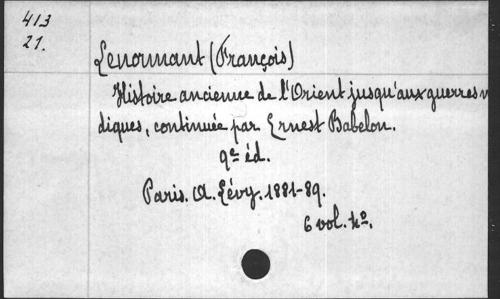 413
21.
Lenormant (François)
Histoire ancienne de l'Orient jusqu'aux guerres m
diques, continuée par Ernest Babelon.
9e éd.
Paris. A. Lévy. 1881-89.
6 vol. 4o.